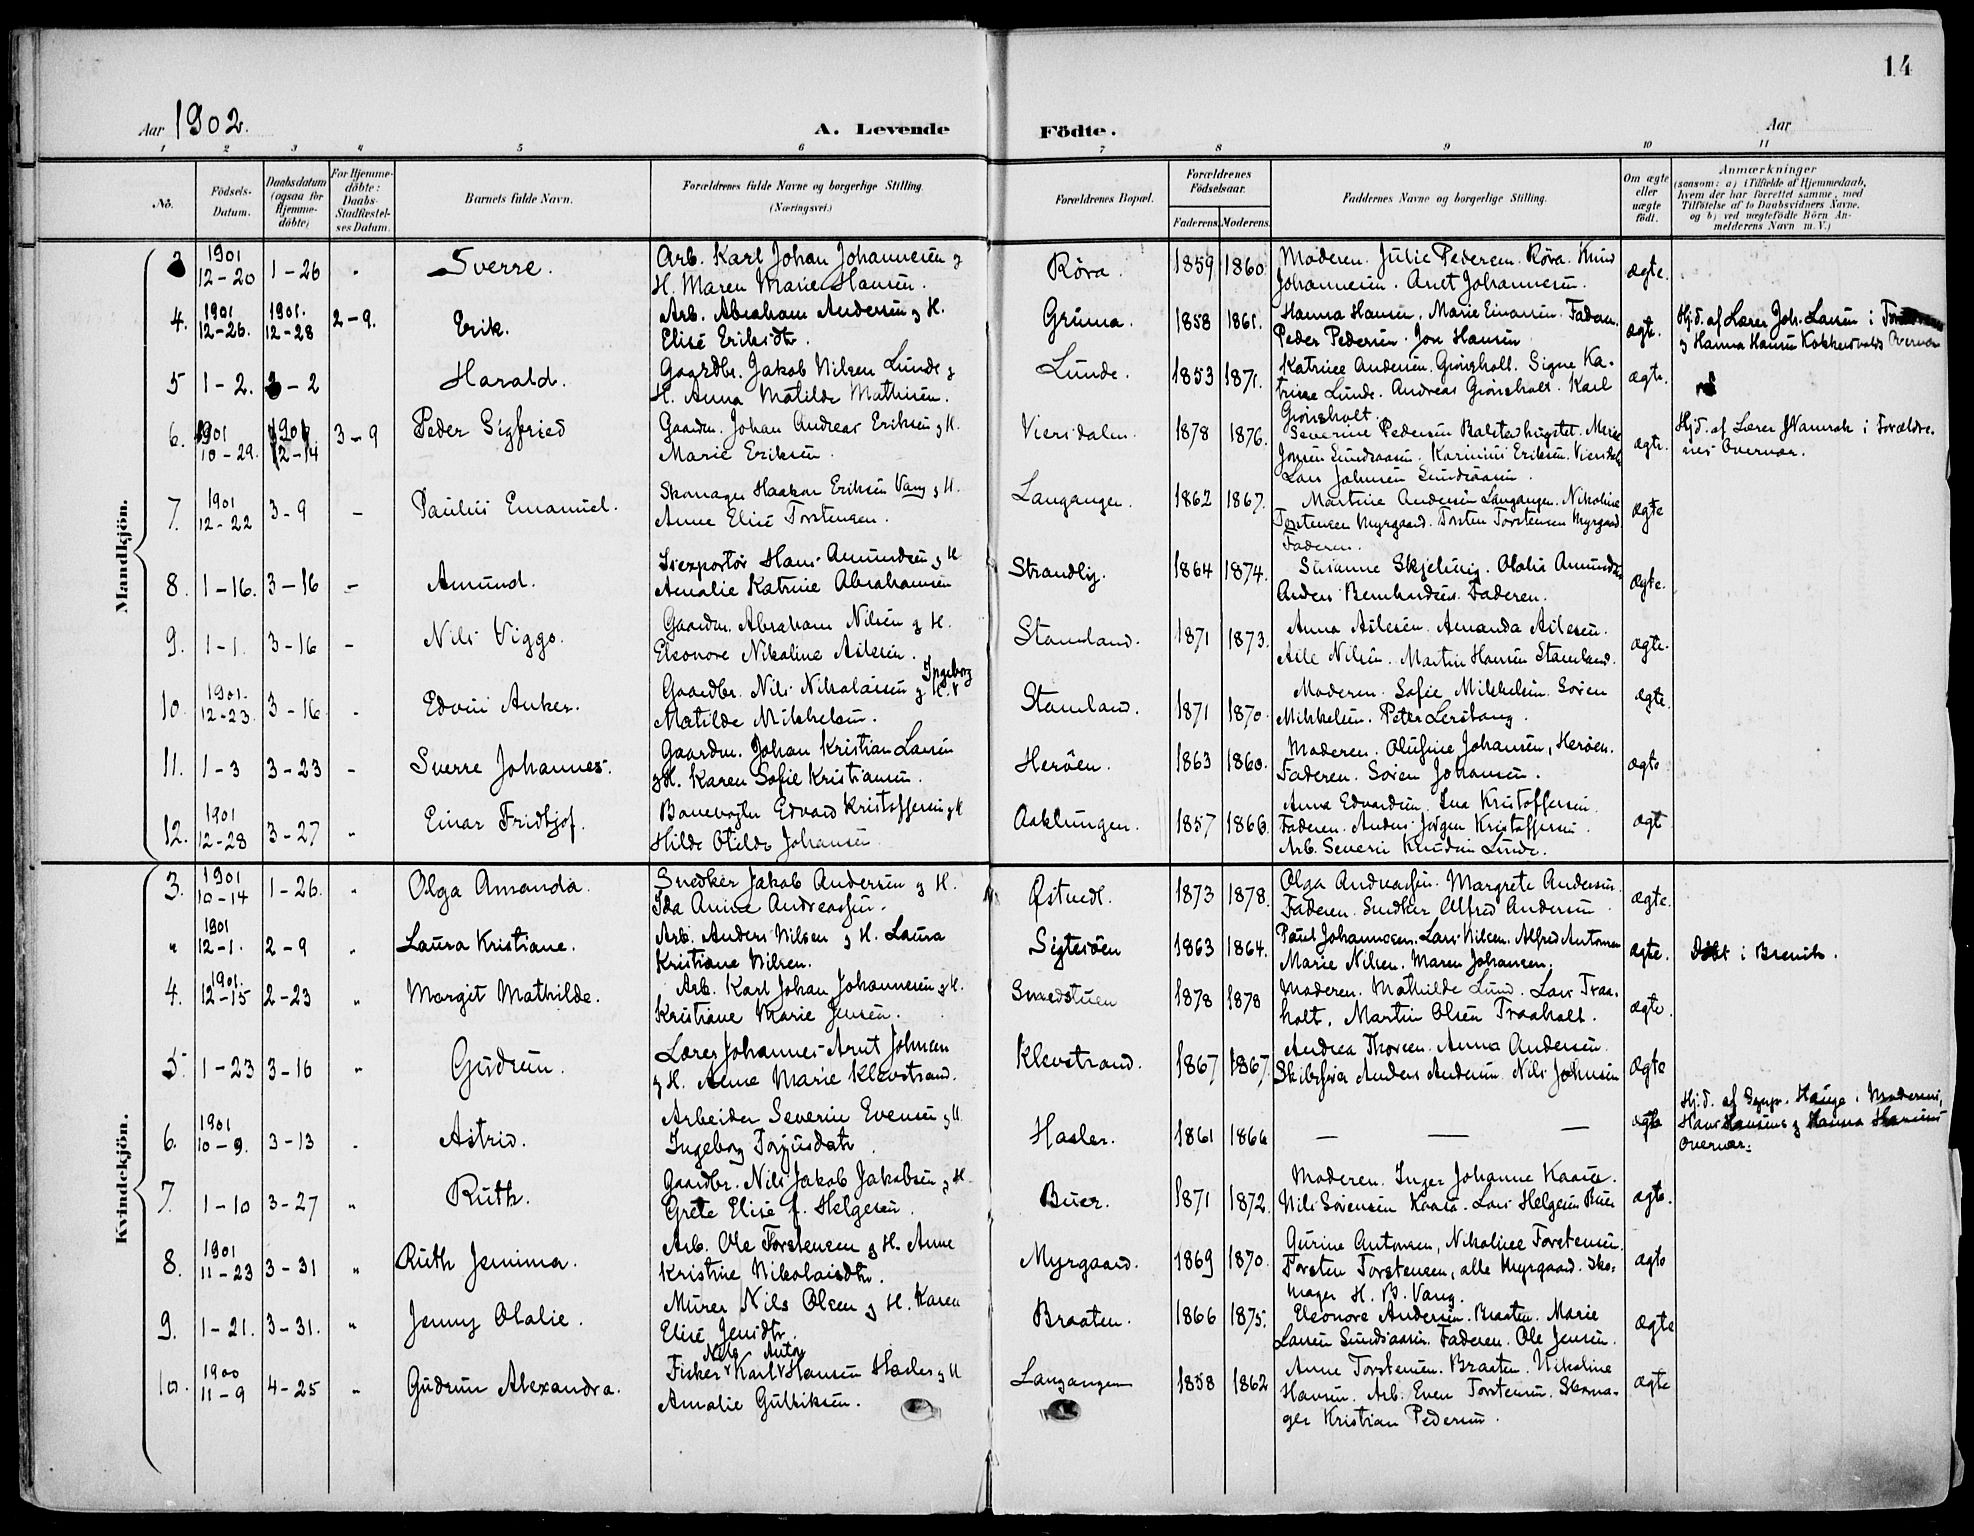 14
Aar 1902.
A. Levende Födte.
Aar
1 2 3 4 5 6 7 8 9 10 11
Nö.
Födsels-Datum.
Daabsdatum (ogsaa for Hjemme-döbte)
For Hjemme-döbte: Daabs-Stadfæstel-ses Datum.
Barnets fulde Navn.
Forældrenes fulde Navne og borgerlige Stilling. (Næringsvei.)
Forældrenes Bopæl.
Forældrenes Födselsaar.
Faderens. Moderens.
Faddernes Navne og borgerlige Stilling.
Om ægte eller uægte födt.
Anmærkninger
(saasom: a) i Tilfælde af Hjemmedaab,
hvem der har forrettet samme, med
Tilföielse af to Daabsvidners Navne,
og b) ved uægtefödte Börn An-
melderens Navn m. V.)
Mandkjön.
3 1901 12-20 1-26 Sverre. Arb. Karl Johan Johannesen g
H. Maren Marie Hansen. Röra. 1859 1860 Moderen. Julie Pedersen. Röra. Knud
Johannesen. Anet Johannesen. ægte.
4. 1901 12-26. 1901. 12-28 2-9. Erik. Arb. Abraham Andersen g H.
Elise Eriksdtr. Gruma. 1858 1861. Hanna Hansen, Marie Einarsen. Faderen.
Peder Pedersen. Jon Hansen. ægte. Hj.d. af Lærer Joh. Larsen i
g Hanna Hansen
5 1-2. 3-2 Harald. Gaardbr. Jakob Nilsen Lunde g
H. Anna Matilde Mathisen. Lunde. 1853 1871. Katrine Andersen. Grönsholt. Signe Ka-
trine Lunde. Andreas Grönsholt. Karl
Grönsholt. ægte.
6. 1901 10-29. 1901 12-14 3-9 Peder Sigfried Gaardm. Johan Andreas Eriksen g H.
Marie Eriksen. Viersdalen. 1878 1876. Severine Pedersen. Marie
Jensen Sundsaasen. Karinius Eriksen.
Lars Johnsen Sundsaasen. ægte. Hj.d. af Lærer i Forældre-
nes Overvær.
7. 1901 12-22 3-9 - Paulus Emanuel. Skomager Haakon Eriksen Vang g H.
Anne Elise Torstensen. Langangen. 1862 1867. Martine Andersen Langangen. Nikoline
Torstensen Myrgaard. Torsten Torstensen Myrgaard
Faderen. ægte
8. 1-16. 3-16 - Amund. Isexportör Hans Amundsen g H
Amalie Katrine Abrahamsen Strandby. 1864 1874. Susanne Skjelsvig. Olalia Amundsen
Anders Bernhardsen. Faderen. ægte.
9. 1-1. 3-16 - Nils Viggo. Gaardm. Abraham Nilsen g H.
Eleonore Nikoline Aslesen. Stamland. 1871 1873. Anna Aslesen. Amanda Aslesen.
Asle Nilsen. Martin Hansen Stamland. ægte.
10. 1901. 12-23. 3-16 Edvin Anker. Gaardbr. Nils Nikolaisen g H. Ingeborg
Matilde Mikkelsen. Stamland. 1871 1870. Moderen. Sofie Mikkelsen. Sören
Mikkelsen. Peter Lerstang. ægte.
11. 1-3 3-23 - Sverre Johannes. Gaardm. Johan Kristian Larsen
g H. Karen Sofie Kristiansen. Heröen. 1863 1860. Moderen. Olufine Johansen, Heröen.
Faderen. Sören Johansen. ægte
12. 1901 12-28 3-27 Einar Fridtjof. Banevogter Edvard Kristoffersen g H
Hilde Otilde Johansen Aaklungen. 1857 1866. Anna Edvardsen, Ina Kristoffersen
Faderen. Anders Jörgen Kristoffersen.
Arb. Severin Knudsen Lunde. ægt
Kvindekjön.
3. 1901 10-14 1-26. Olga Amanda. Snedker Jakob Andersen g H.
Ida Anine Andreassen. Östvedt. 1873 1878. Olga Andreassen. Margrete Andersen.
Faderen. Snedker Alfred Andersen ægte.
" 1901 12-1. 2-9 Laura Kristiane. Arb. Anders Nilsen g H. Laura
Kristiane Nilsen. Sigtesöen 1863 1864. Paul Johannesen. Lars Nilsen. Alfred Antonsen
Marie Nilsen. Maren Johansen. ægte. Döbt i Brevik.
4. 1901. 12-15 2-23 Margit Mathilde. Arb. Karl Johan Johannesen g H.
Kristiane Marie Jensen. Smedstuen 1878 1878 Moderen. Mathilde Lund. Lars Traa-
holt. Martin Olsen Traaholt. ægte.
5. 1-23 3-16 Gudrun. Lærer Johannes Arnt Johnsen
g H. Anne Marie Klevstrand. Klevstrand. 1867 1867. Andrea Thorsen. Anna Andersen.
Anders Andersen. Nils Johnsen ægte
6. 1901 10-9. 3-13 Astrid. Arbeider Severin Evensen g H.
Ingeborg Torjusdatr. Hasler. 1861 1866 — — — ægte Hj.d. af Hauge i Moderens,
Hans Hansens g Hanna Hansens
Overvær.
7. 1-10 3-27 Ruth. Gaardbr. Nils Jakob Jakobsen g H.
Grete Elise f. Helgesen. Buer. 1871 1872. Moderen. Inger Johanne Kaasa.
Nils Sörensen Kaasa. Lars Helgesen Buer ægte.
8. 1901 11-23 3-31 Ruth Jemima. Arb. Ole Torstensen g H. Anne
Kristine Nikolaisdtr. Myrgaard. 1869 1870. Gurine Antonsen, Nikoline Torstensen.
Torsten Torstensen, alle Myrgaard. Sko-
mager H. B. Vang. ægte
9. 1-21. 3-31. Jenny Olalie. Murer Nils Olsen g H. Karen
Elise Jensdtr. Braaten. 1866 1875. Eleonore Andersen. Braaten. Marie
Larsen Sundsaasen. Faderen. Ole Jensen. ægte
10. 1900 11-9 4-25 Gudrun Alexandra. Fisker Nils Karl Anton Hansen Hasler g H
Amalie Gulliksen. Langangen 1858 1862 Anne Torstensen. Braaten. Nikoline
Hansen. Arb. Even Torstensen. Skoma-
ger Kristian Pedersen. ægte